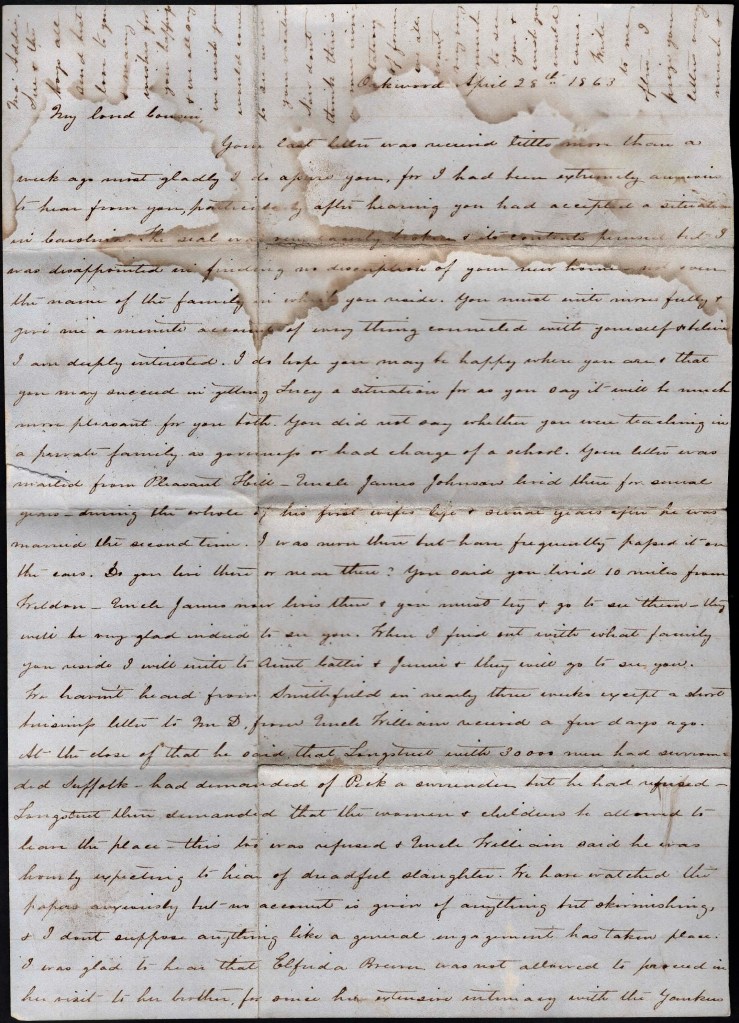 Oakwood April 28th 1863
My loved Cousin,
Your last letter was received little more than a
week ago most gladly I do assure you, for I had been extremely anxious
to hear from you, particularly after hearing you had accepted a situation
in Carolina. The seal was very eagerly broken & its contents perused but I
was disappointed in finding no description of your new home not even
the name of the family in which you reside. You must write more fully &
give me a minute account of every thing connected with yourself & believe
I am deeply interested. I do hope you may be happy where you are & that
you may succeed in getting Lucy a situation for as you say it will be much
more pleasant for you both. You did not say whether you were teaching in
a private family as governess or had charge of a school. Your letter was
mailed from Pleasant Hill – Uncle James Johnson lived there for several
years – during the whole of his first wife's life & several years after he was
married the second time. I was never there but have frequently passed it on
the cars. Do you live there or near there? You said you lived 10 miles from
Weldon – Uncle James now lives there & you must try & go to see them – they
will be very glad indeed to see you. When I find out with what family
you reside I will write to Aunt Cattie & Jennie & they will go to see you.
We havn't heard from Smithfield in nearly three weeks except a short
business letter to Mr D, from Uncle William received a few days ago.
At the close of that he said that Longstreet with 30000 men had surroun
ded Suffolk – had demanded of Peck a surrender but he had refused –
Longstreet then demanded that the women & children be allowed to
leave the place – this too was refused & Uncle William said he was
hourly expecting to hear of dreadful slaughter. We have watched the
papers anxiously but no account is given of anything but skirmishing,
& I dont suppose anything like a general engagement has taken place.
I was glad to hear that Elfrida Brewer was not allowed to proceed in
her visit to her brother, for since her extensive intimacy with the Yankees